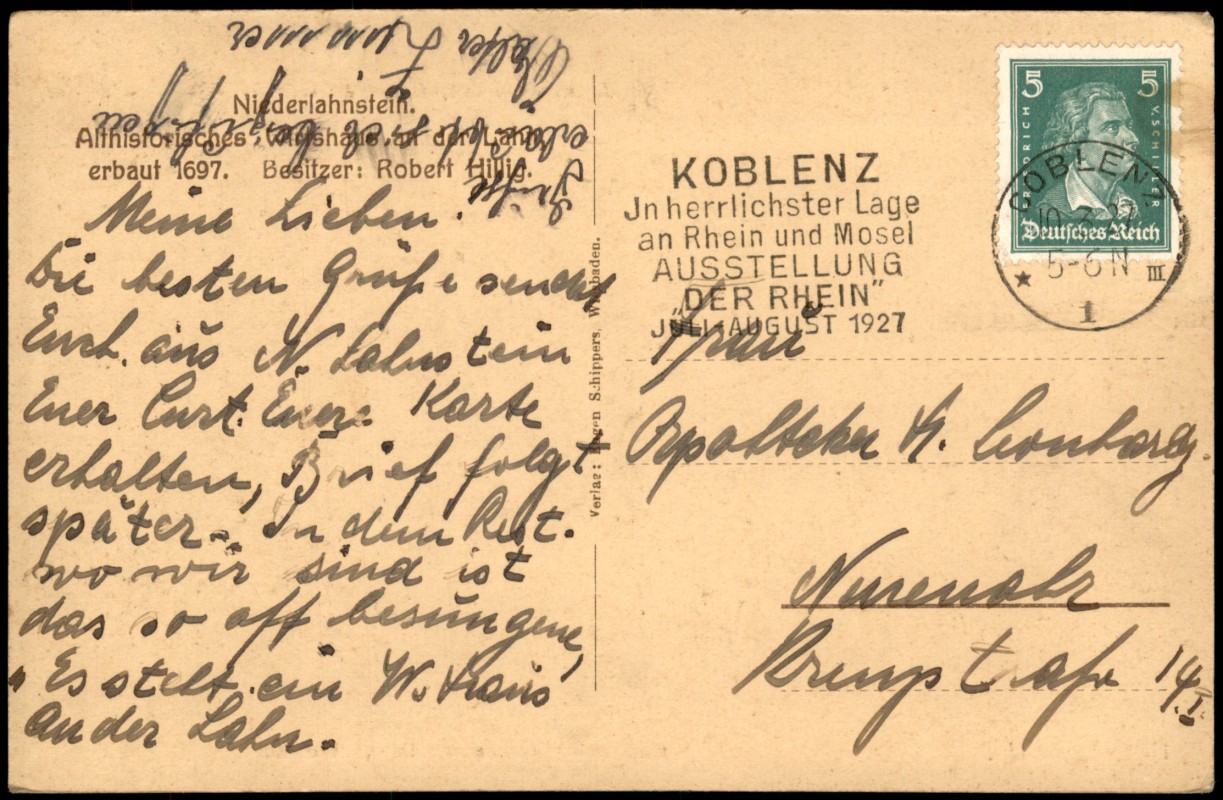 Niederlahnstein.
Althistorisches Wirtshaus an der Lahn,
erbaut 1697. Besitzer: Robert Hillig.
Meine Lieben.
Die besten Grüße sendet
Euch aus N. Lahnstein
Euer Curt. Euer Karte
erhalten, Brief folgt
später. In dem Rest.
wo wir sind ist
das so oft besungene,
„Es steht ein W. Haus
an der Lahn.
Grüße
Walter
Verlag: Eugen Schippers, Wiesbaden.
KOBLENZ
Jn herrlichster Lage
an Rhein und Mosel
AUSSTELLUNG
„DER RHEIN"
JULI-AUGUST 1927
5 5
FRIEDRICH V. SCHILLER
Deutsches Reich
COBLENZ
10.3.27
5-6 N
★ III
1
Frau
Apotheker H. Leonhardy.
Neuenahr
14 I.